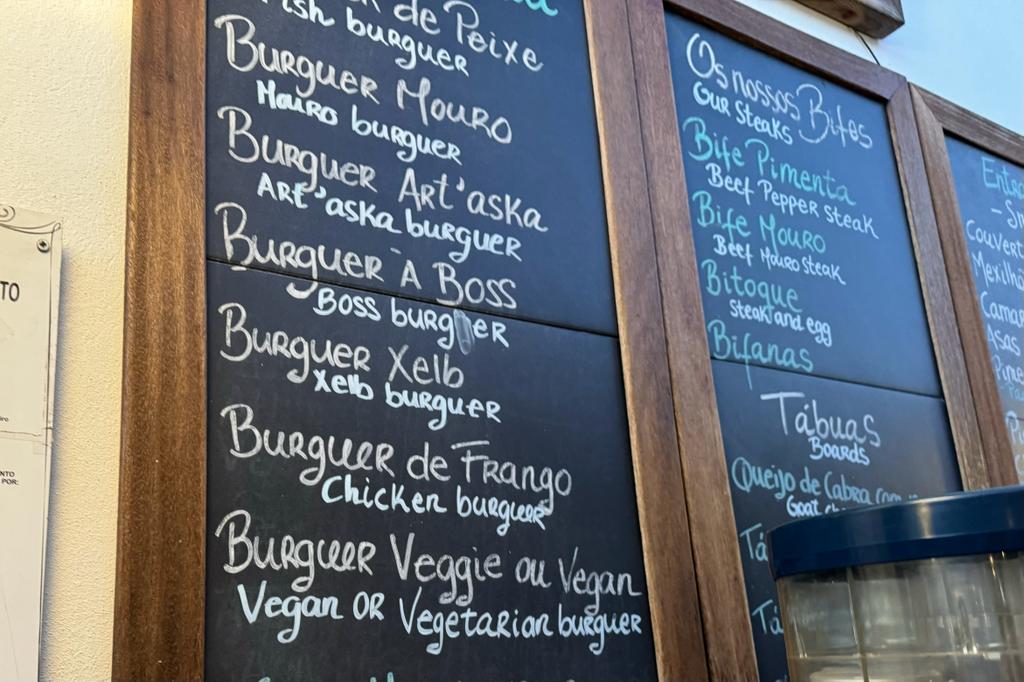 de Peixe
Fish burguer
Burguer Mouro
Mouro burguer
Burguer Art'aska
Art'aska burguer
Burguer À Boss
Boss burguer
Burguer Xelb
Xelb burguer
Burguer de Frango
Chicken burguer
Burguer Veggie ou Vegan
Vegan OR Vegetarian burguer
Os nossos Bifes
Our Steaks
Bife Pimenta
Beef Pepper Steak
Bife Mouro
Beef Mouro Steak
Bitoque
Steak and egg
Bifanas
Tábuas
Boards
Queijo de Cabra com
Goat
Couvert